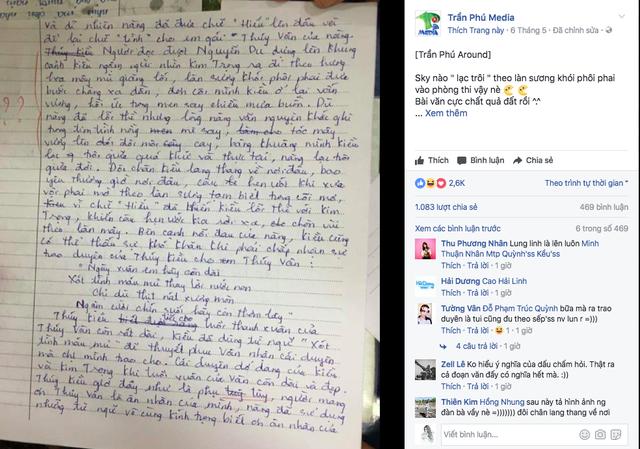 và dĩ nhiên nàng đã đưa chữ "Hiếu" lên đầu và
để lại chữ "tình" cho em gái - Thúy Vân của nàng.
Thúy Kiều Người đọc được Nguyễn Du dựng lên khung
cảnh Kiều ngậm ngùi nhìn Kim Trọng ra đi theo hướng
bước chẳng xa dần, đơn côi mình Kiều ở lại vấn
vương, hồi ức trong men say chiều mưa buồn. Dù
trong tim tình nồng men mê say, làm cho tóc mây
lạc trôi giữa quá khứ và thực tại, nàng lạc trôi
giữa đời. Đôi chân Kiều lang thang về nơi đâu, bao
yêu thương giờ nơi đâu, câu thơ hẹn ước khi xưa
vội phai mờ theo làn sương tan biến trong cõi mơ,
vì chữ "Hiếu" đã khiến Kiều lỗi thề với Kim
Trọng, khiến câu hẹn ước kia rời xa, chôn vùi
theo làn mây. Bên cạnh nỗi đau của nàng, Kiều cũng
trao duyên của Thúy Kiều cho em Thúy Vân:
"Ngày xuân em hãy còn dài
Xót tình máu mủ thay lời nước non
Chị dù thịt nát xương mòn
Ngậm cười chín suối hãy còn thơm lây"
Thúy Kiều tuổi thanh xuân của
Thúy Vân còn rất dài, Kiều đã dùng từ ngữ "Xót
tình máu mủ" để thuyết phục Vân nhận cái duyên
mà chị mình trao cho. Cái duyên dở dang của Kiều
và Kim Trọng khi tuổi xuân của Vân còn dài và đẹp.
Thúy Kiều giờ đây như là phụ tùy, người mang
ơn Thúy Vân là ân nhân của mình, nàng đã sử dụng
những từ ngữ vô cùng kính trọng biết ơn ân nhân của
???
Trần Phú Media
Thích Trang này · 6 Tháng 5 · Đã chỉnh sửa ·
[Trần Phú Around]
Sky nào " lạc trôi " theo làn sương khói phôi phai
vào phòng thi vậy nè
Bài văn cực chất quả đất rồi ^.^
... Xem thêm
Thích Bình luận Chia sẻ
2,6K Theo trình tự thời gian
1.083 lượt chia sẻ 469 bình luận
Xem các bình luận trước 6 trong số 469
Thu Phương Nhân Lung linh là lên luôn Minh
Thuận Nhân Mtp Quỳnh'ss Kều'ss
Thích · Trả lời · 1 giờ
Hải Dương Cao Hải Linh
Thích · Trả lời · 1 giờ
Tường Vân Đỗ Phạm Trúc Quỳnh bữa mà ra trao
duyên là tui cũng đu theo sếp'ss nv lun r =)))
Thích · Trả lời · 1 · 1 giờ
4 câu trả lời · 1 giờ
Zell Lê Ko hiểu ý nghĩa của dấu chấm hỏi. Thật ra
cả đoạn văn đấy có nghĩa hết mà. :))
Thích · Trả lời · 1 giờ
Thiên Kim Hồng Nhung sau này tả hình ảng ng
đàn bà vậy nè =))))))) đôi chân lang thang về nơi
Viết bình luận...